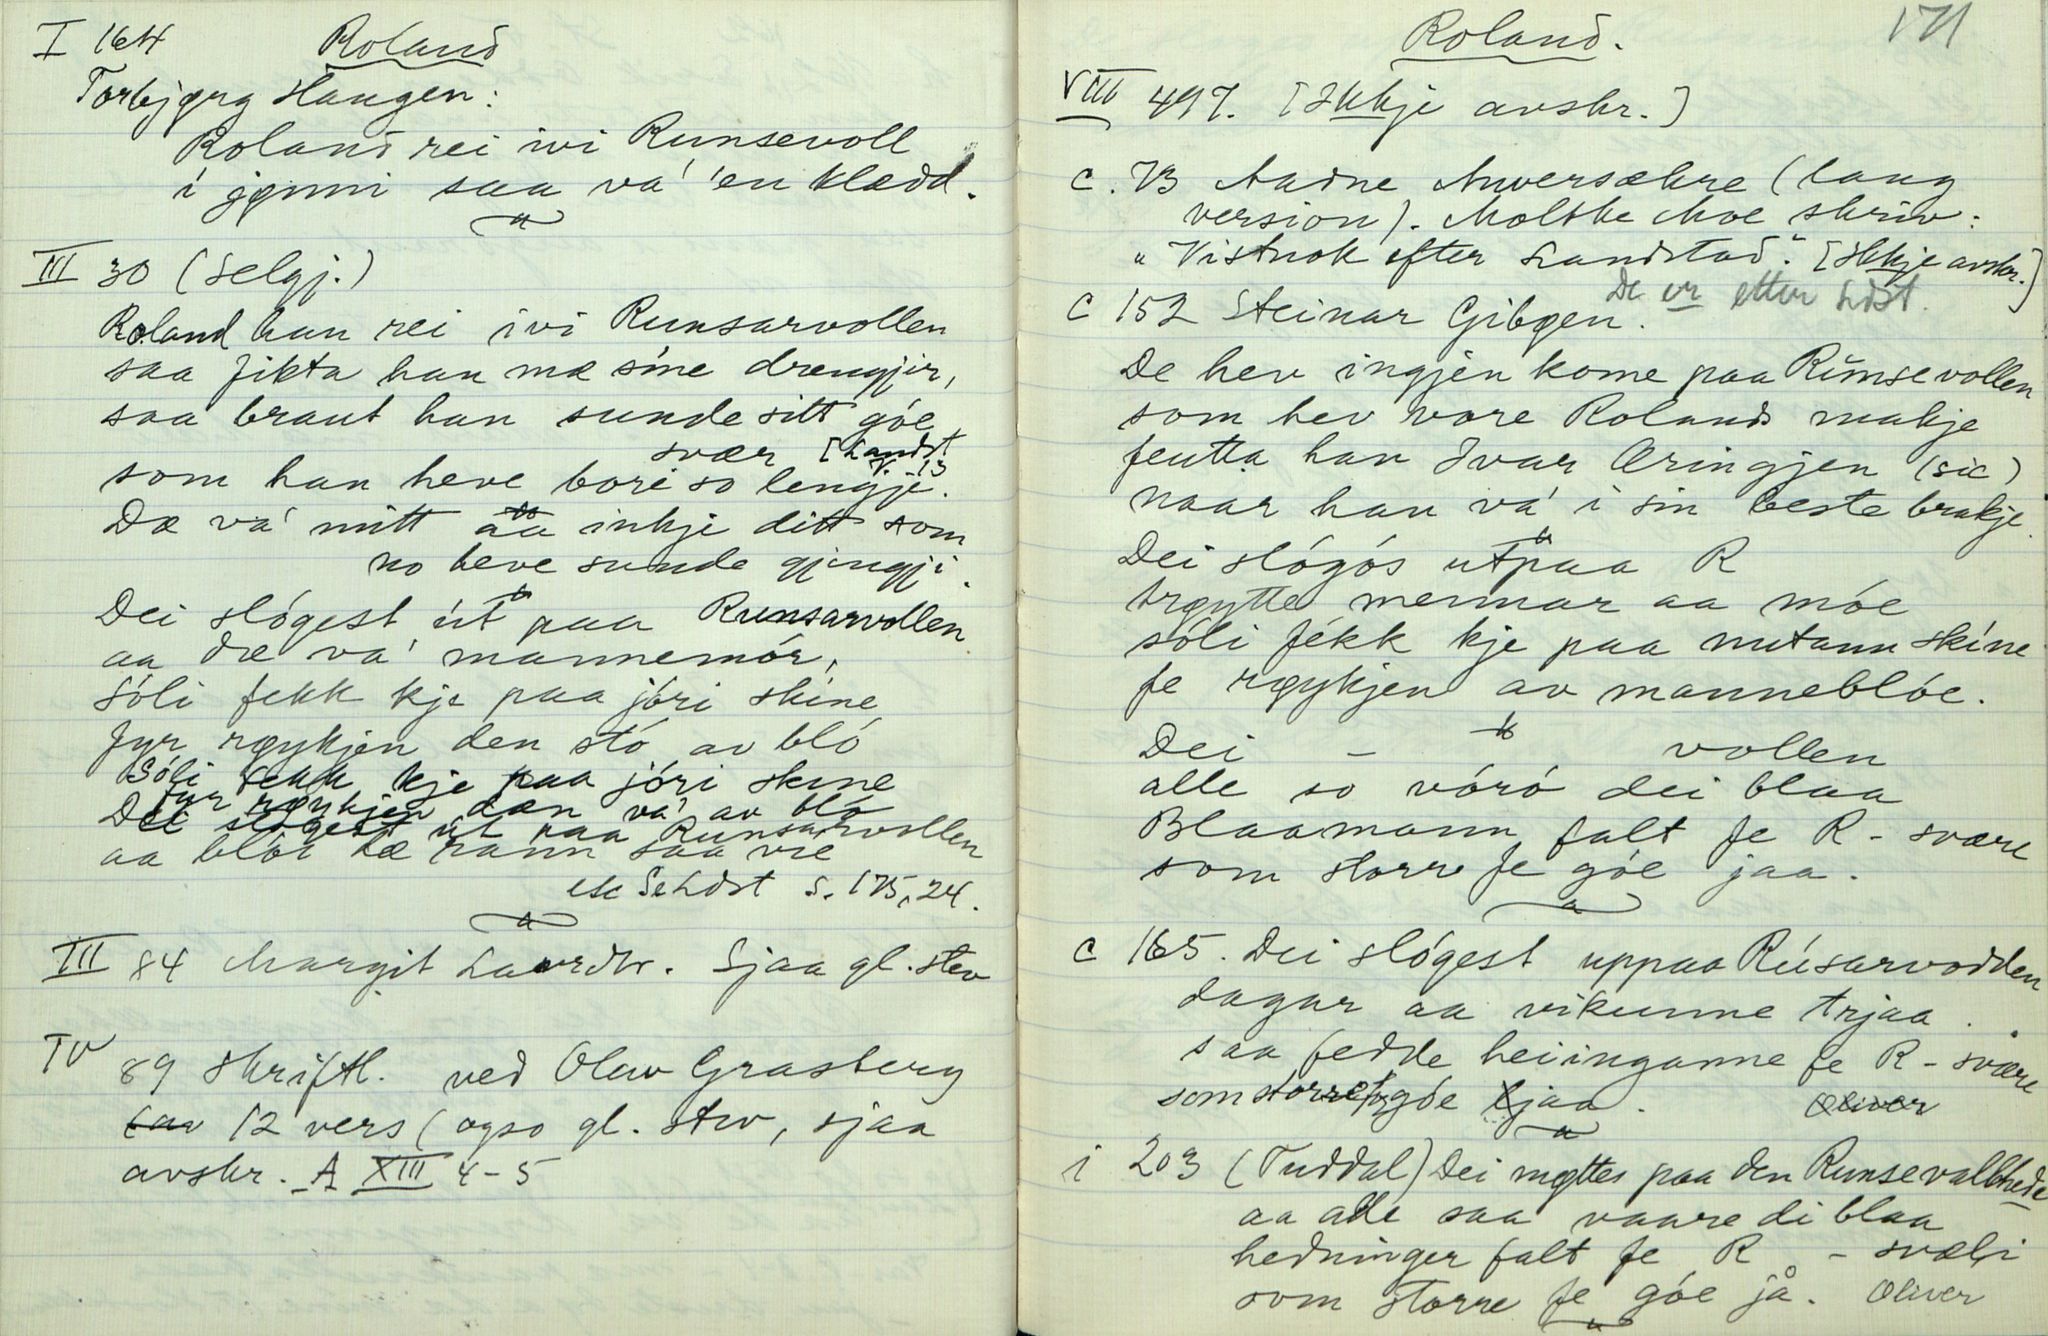 I 164 Roland
Torbjørg Haugen:
Roland rei ivi Runsevoll
i jønni saa va' 'en klædd.
III 30 (Selgj.)
Roland han rei ivi Runsarvollen
saa fikta han mæ sine drengjir,
saa braut han sunde sitt góe
svær [Landst
V. 13
som han heve bori so lengji.
Dæ va' mitt aa inkje ditt som
no heve sunde gjengji.
Dei slógest út paa Runsarvollen
aa dæ va' mannemór,
sóli fekk kje paa jóri skine
fyr røykjen den stó av bló
Sóli fekk kje paa jóri skine
fyr røykjen dæn va' av bló
Dei slógest út paa Runsarvollen
aa blói tæ rann saa vie
etc Se Ldst s. 175, 24.
III 84 Margit Laurdtr. Sjaa gl. stev
IV 89 Skriftl. ved Olav Grasberg
12 vers (ogso gl. stev, sjaa
avskr. A XIII 4-5
171
Roland.
VIII 497. [Ikkje avskr.]
C. 73 Aadne Anversækre (lang
version). Moltke Moe skriv:
"Vistnok efter Landstad". [Ikkje avskr.]
De er etter Ldst.
C 152 Steinar Gibøen.
De hev ingjen kome paa Rúmsevollen
som hev vore Rolands makje
feutta han Ivar Æringjen (sic)
naar han va' i sin beste brakje.
Dei slógós utpaa R
trøytte mennar aa móe
sóli fékk kje paa nutann skíne
fe røykjen av mannebló​e.
Dei – vollen
alle so vóró dei blaa
Blaamann falt fe R - svære
som storre fe góe jaa.
C 165. Dei slógest uppaa Rúsarvodden
dagar aa vikunne trjaa.
saa fedde heiinganne fe R - svære
som storre fy góe ljaa. Oliver
i 203 (Tuddal) Dei møttes paa den Runsevalhede
aa alle saa vaare di blaa
hedninger falt fe R - svæli
som storre fe góe jå. Oliver